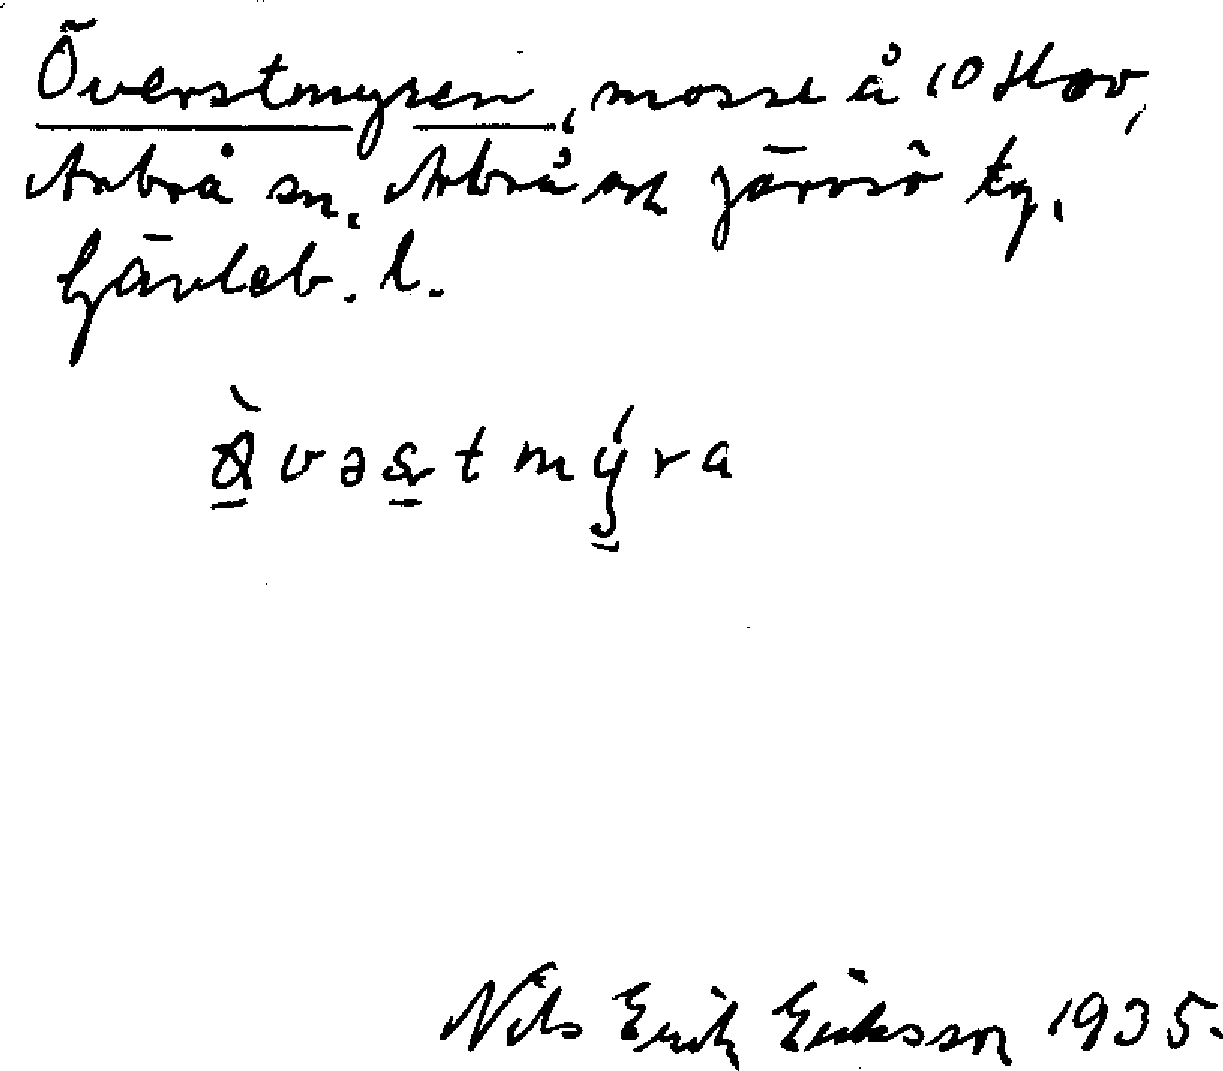 Överstmyren, mosse å 10 Hov,
Arbrå sn. Arbrå och Järvsö tg.
Gävleb. l.
vəstmýra
Nils Erik Eriksson 1935.